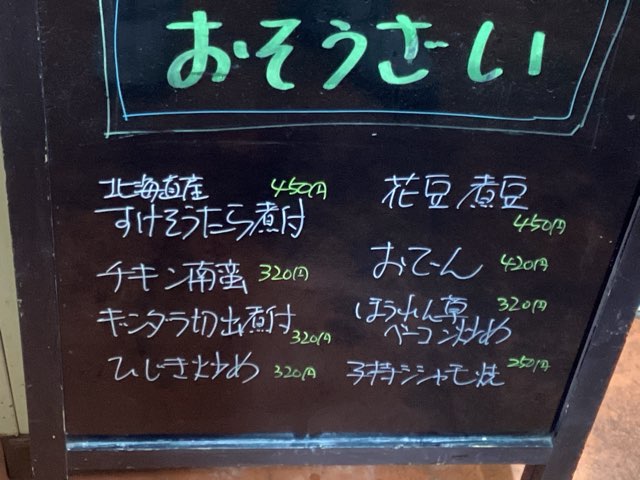 おそうざい
北海道産 450円
すけそうたら煮付
チキン南蛮 320円
ギンタラ切出煮付
320円
ひじき炒め 320円
花豆煮豆
450円
おでん 420円
ほうれん草 320円
ベーコン炒め
子持シシャモ焼 250円